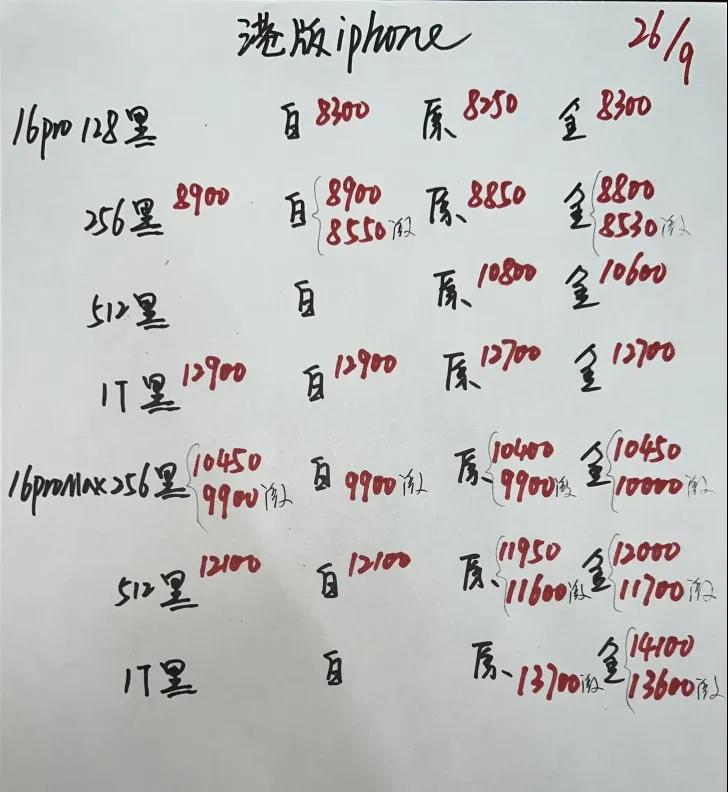 港版iphone 26/9
16pro 128黑 白 8300 原、8250 金 8300
256黑 8900 白 8900 8550激 原、8850 金 8800 8530激
512黑 白 原、10800 金 10600
1T黑 12900 白 12900 原、12700 金 12700
16proMax256黑 10450 9900激 白 9900激 原、10400 9900激 金 10450 10000激
512黑 12100 白 12100 原、11950 11600激 金 12000 11700激
1T黑 白 原、13700激 金 14100 13600激